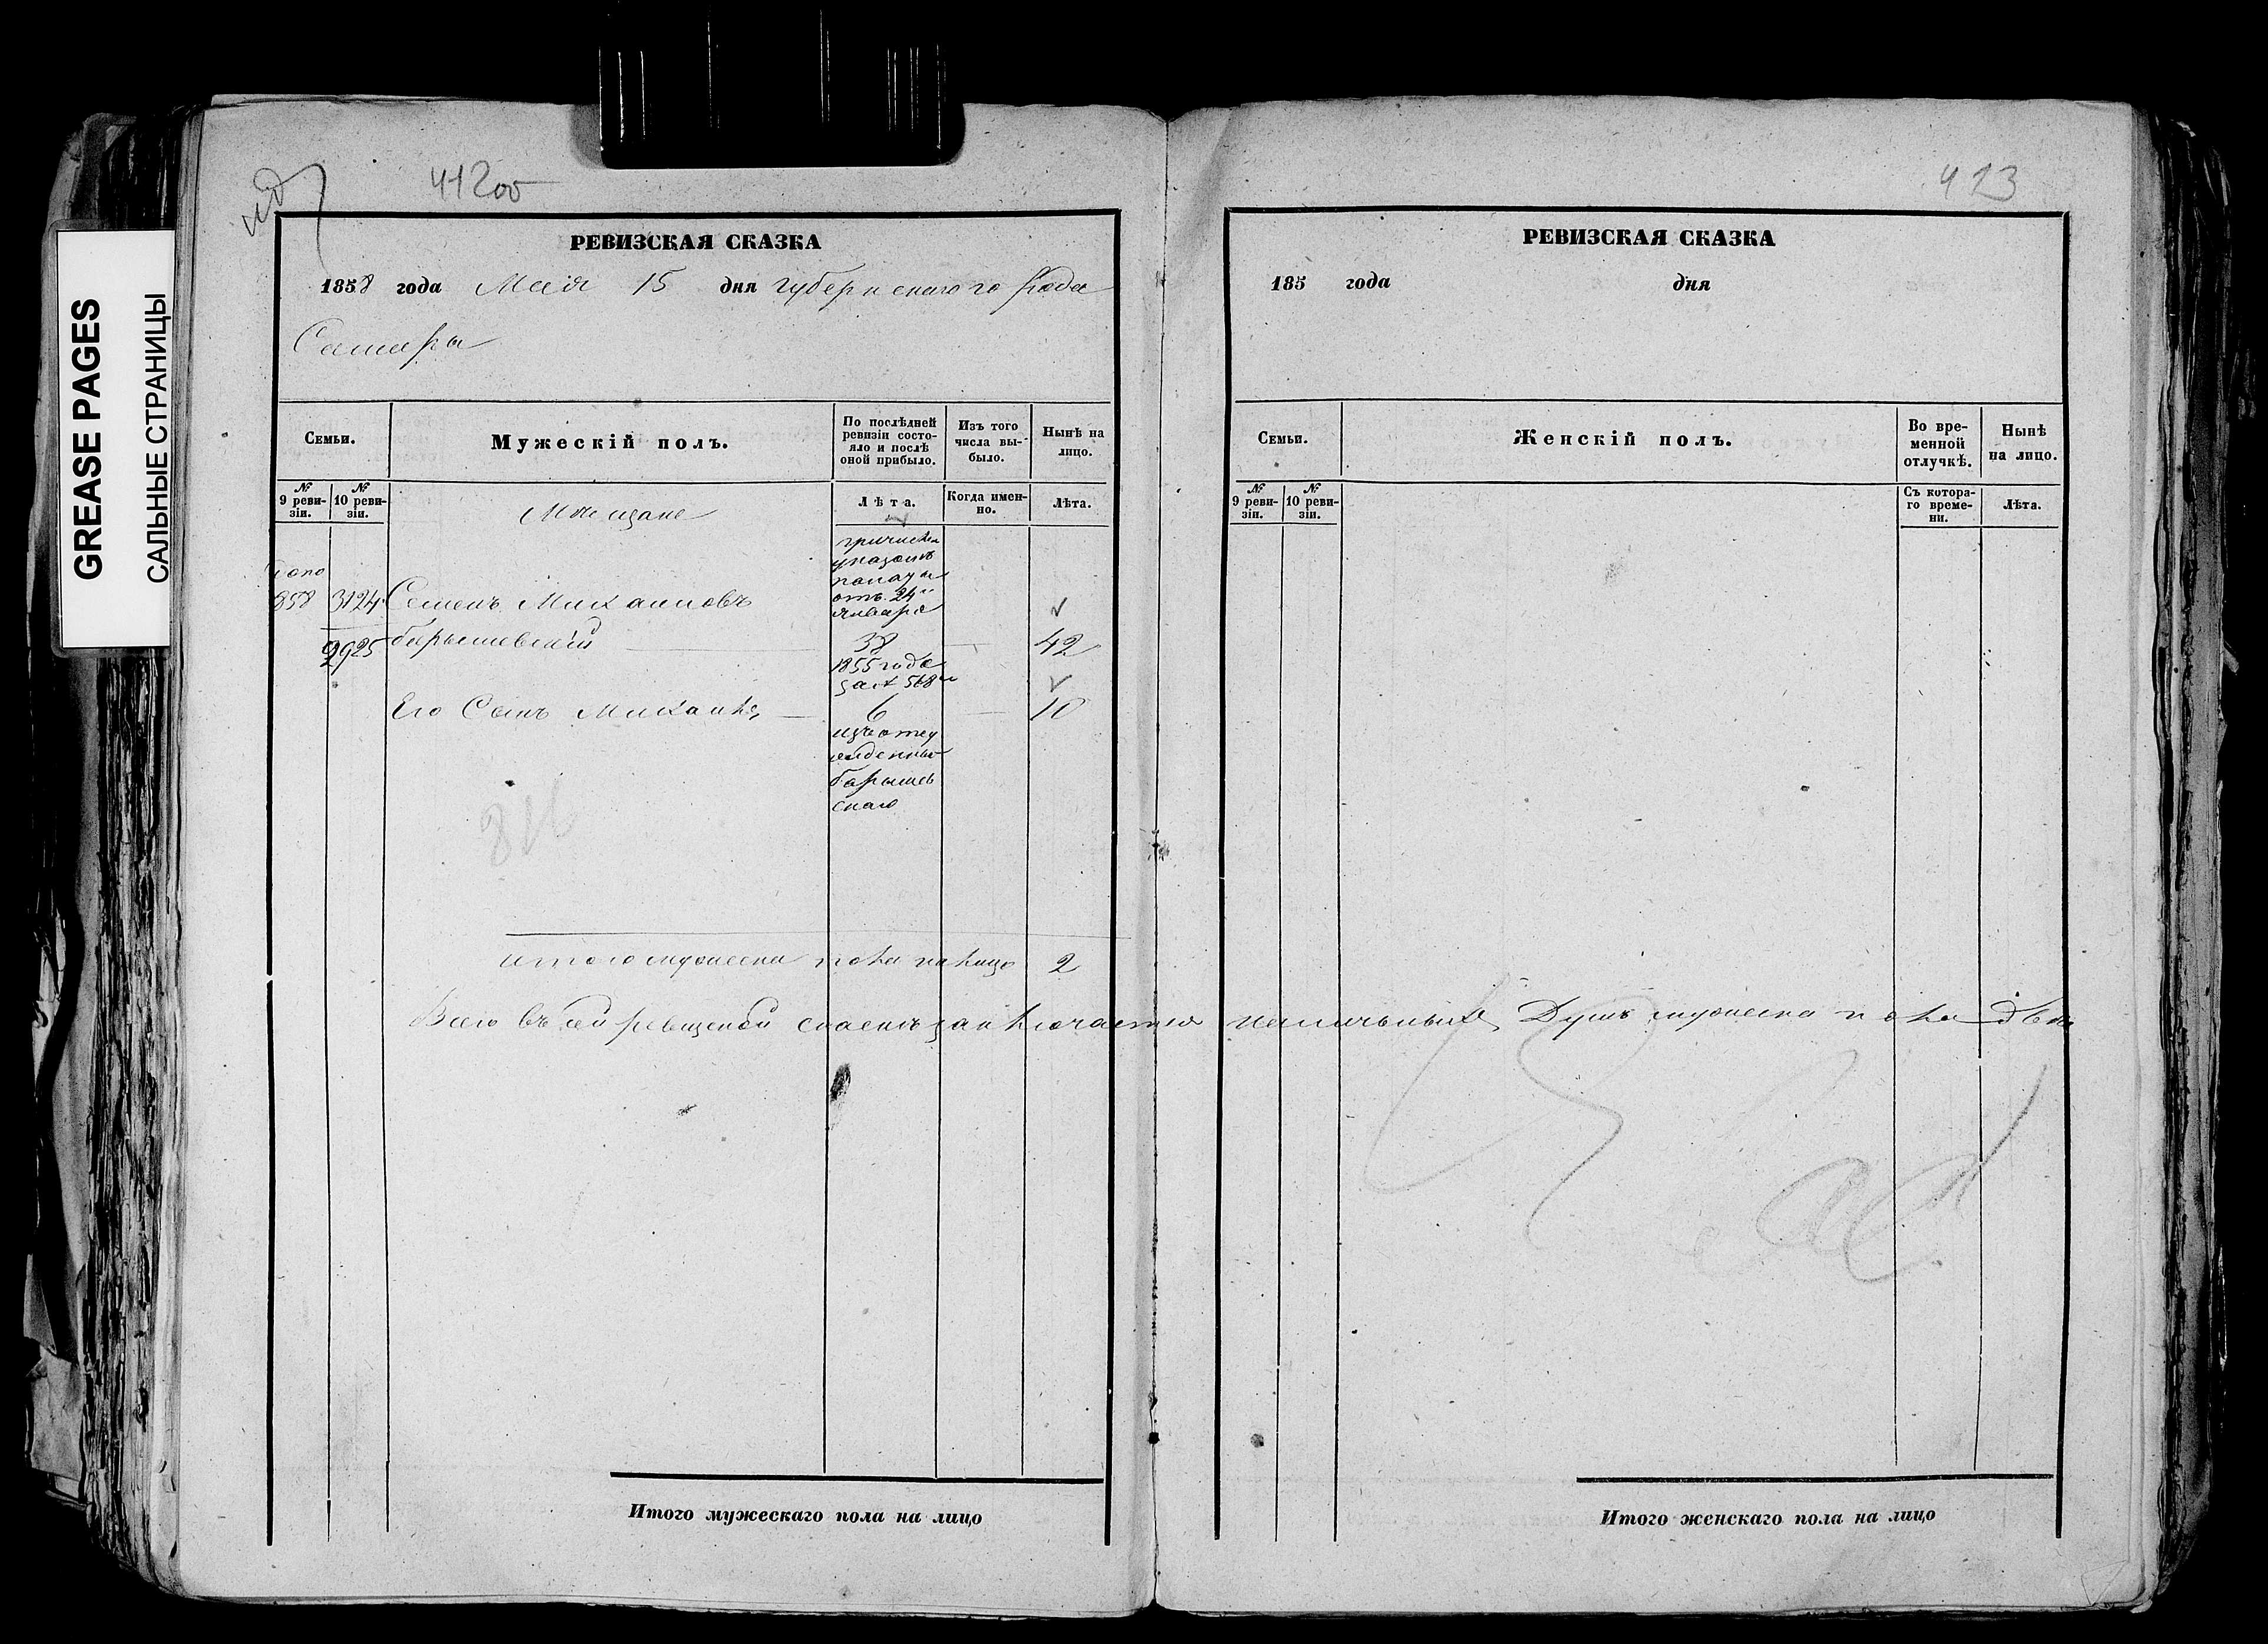 GREASE PAGES
САЛЬНЫЕ СТРАНИЦЫ
412об
РЕВИЗСКАЯ СКАЗКА
1858 года Маія 15 дня губернскаго года
Самары
Семьи.
Мужескій полъ.
По послѣдней ревизіи состояло и послѣ оной прибыло.
Изъ того числа выбыло.
Нынѣ на лицо.
№ 9 ревизіи.
№ 10 ревизіи.
Мѣщане
Лѣта.
Когда именно.
Лѣта.
причислен
указомъ
палаты
отъ 24
января
858 3124 Семенъ Михаиловъ
2925 барышевскій 38 42
1855 года
за № 568
Его Сынъ Михаилъ 6 10
изъ отсу
жденных
барышев
скаго
итого мужеска пола на лицо 2
Всего въ сей ревизской сказкѣ заключается
Итого мужескаго пола на лицо
423
РЕВИЗСКАЯ СКАЗКА
185 года дня
Семьи.
Женскій полъ.
Во временной отлучкѣ.
Нынѣ на лицо.
№ 9 ревизіи.
№ 10 ревизіи.
Съ котораго времени.
Лѣта.
наличныхъ Душъ мужеска пола два
Итого женскаго пола на лицо